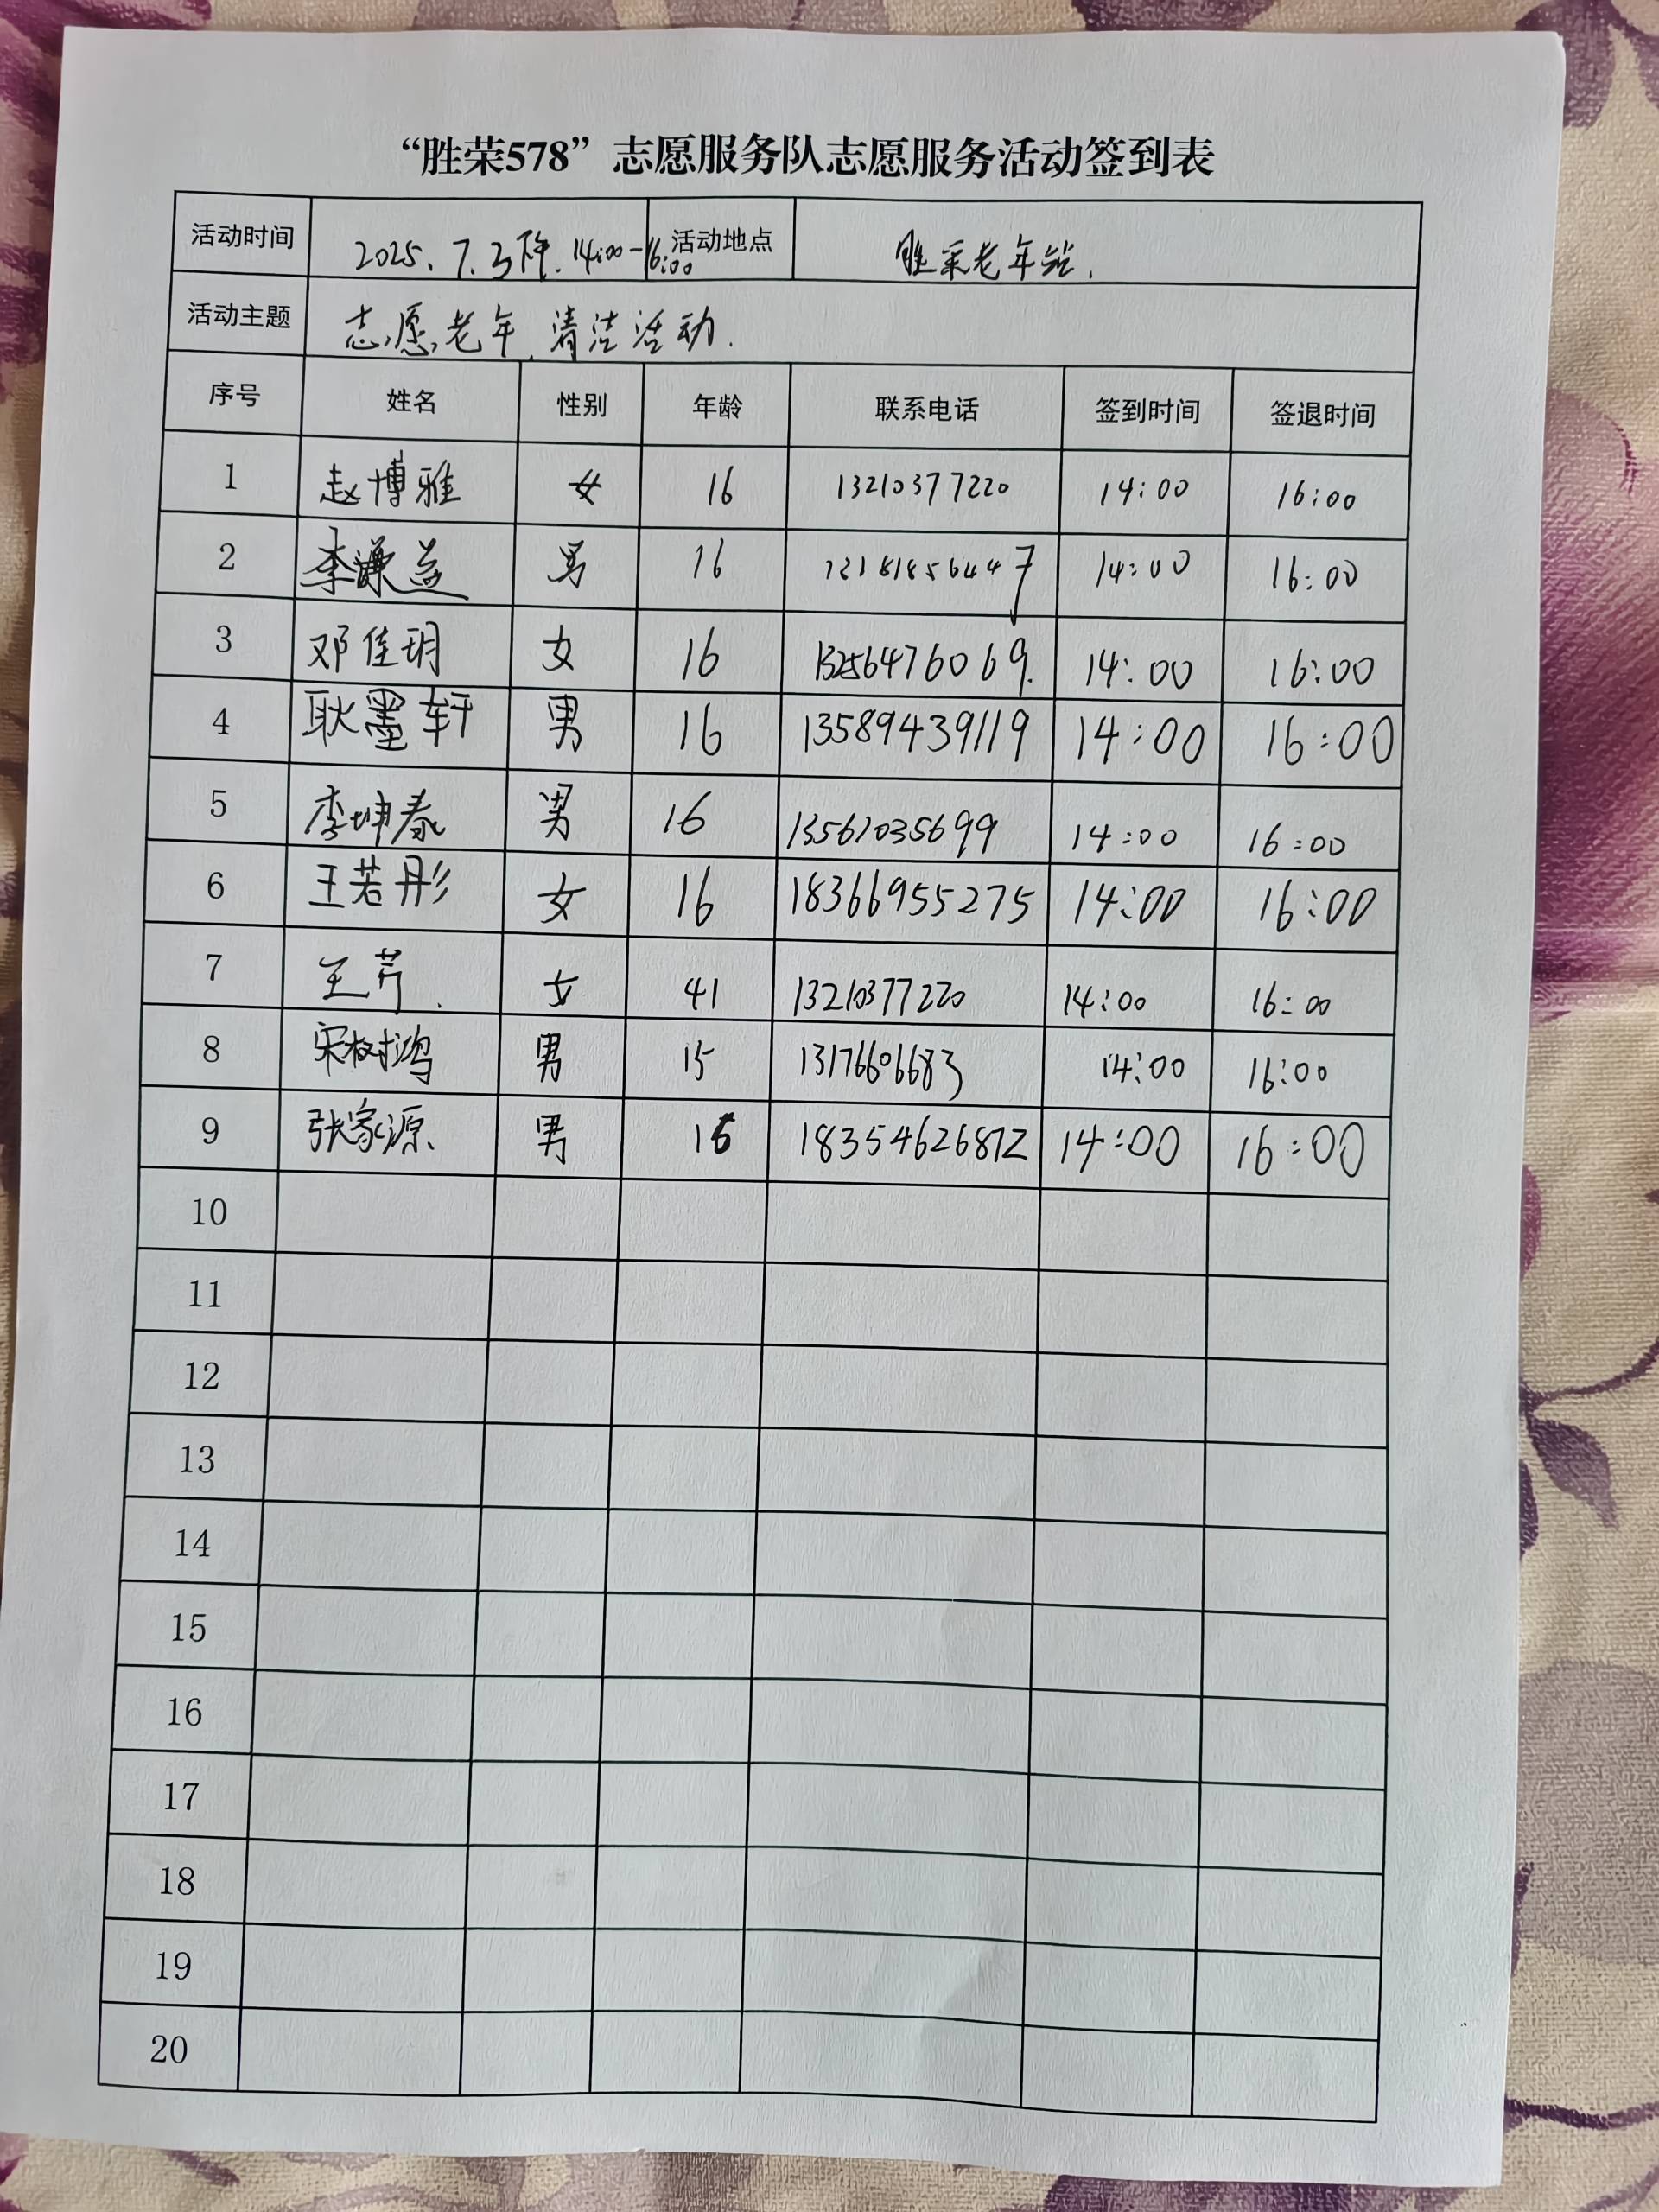 “胜荣578”志愿服务队志愿服务活动签到表
活动时间 2025.7.3下午.14:00-16:00 活动地点 胜采老年站.
活动主题 志愿老年,清洁活动.
序号 姓名 性别 年龄 联系电话 签到时间 签退时间
1 赵博雅 女 16 13210377220 14:00 16:00
2 李谦益 男 16 14:00 16:00
3 邓佳玥 女 16 13256476069. 14:00 16:00
4 耿墨轩 男 16 13589439119 14:00 16:00
5 李坤泰 男 16 13561035699 14:00 16:00
6 王若彤 女 16 18366955275 14:00 16:00
7 王芹. 女 41 13210377220 14:00 16:00
8 宋树鸿 男 15 13176606683 14:00 16:00
9 张家源 男 16 18354626812 14:00 16:00
10
11
12
13
14
15
16
17
18
19
20